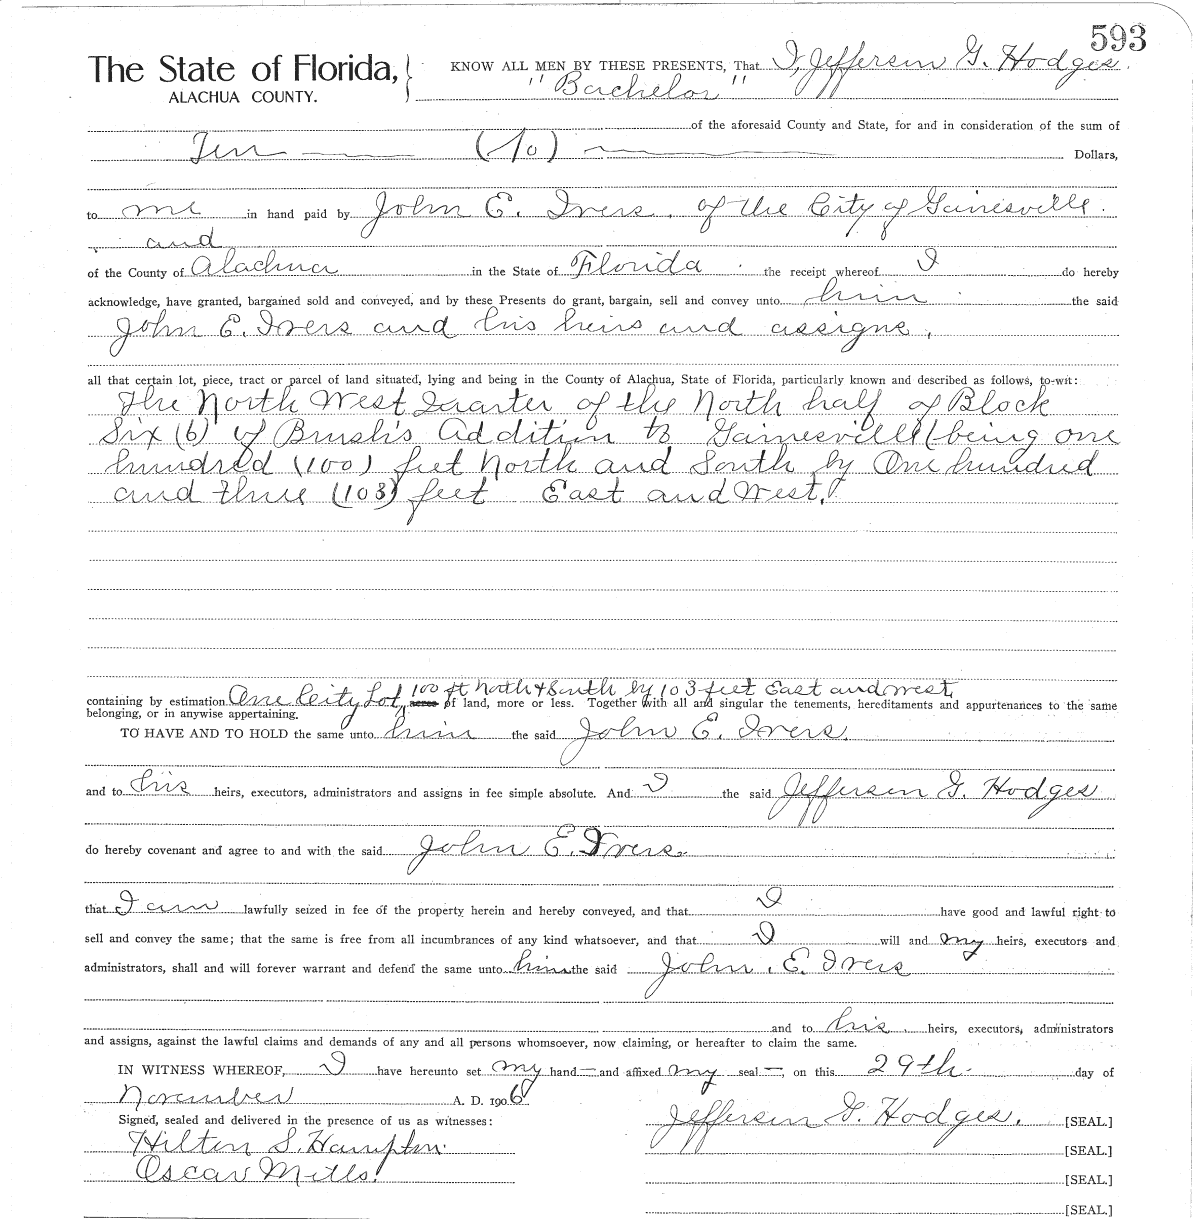 593
The State of Florida, } KNOW ALL MEN BY THESE PRESENTS, That I, Jefferson G. Hodges.
ALACHUA COUNTY. "Bachelor"
of the aforesaid County and State, for and in consideration of the sum of
Ten (10) Dollars,
to me in hand paid by John E. Ivers. of the City of Gainesville.
and
of the County of Alachua in the State of Florida the receipt whereof I do hereby
acknowledge, have granted, bargained sold and conveyed, and by these Presents do grant, bargain, sell and convey unto him the said
John E. Ivers and his heirs and assigns,
all that certain lot, piece, tract or parcel of land situated, lying and being in the County of Alachua, State of Florida, particularly known and described as follows, to-wit:
The North West Quarter of the North half of Block
Six (6) of Brush's Addition to Gainesville (being one
hundred (100) feet North and South by One hundred
and three (103) feet East and West.
100 ft North & South by 103 feet East and West,
containing by estimation One City Lot, acres of land, more or less. Together with all and singular the tenements, hereditaments and appurtenances to the same
belonging, or in anywise appertaining.
TO HAVE AND TO HOLD the same unto him the said John E. Ivers.
and to his heirs, executors, administrators and assigns in fee simple absolute. And I the said Jefferson G. Hodges
do hereby covenant and agree to and with the said John E. Ivers.
that I am lawfully seized in fee of the property herein and hereby conveyed, and that I have good and lawful right to
sell and convey the same; that the same is free from all incumbrances of any kind whatsoever, and that I will and my heirs, executors and
administrators, shall and will forever warrant and defend the same unto him the said John. E. Ivers
and to his heirs, executors, administrators
and assigns, against the lawful claims and demands of any and all persons whomsoever, now claiming, or hereafter to claim the same.
IN WITNESS WHEREOF, I have hereunto set my hand — and affixed my seal —, on this 29th day of
November A. D. 1906
Signed, sealed and delivered in the presence of us as witnesses: Jefferson G. Hodges. [SEAL.]
Hilton S. Hampton. [SEAL.]
Oscar Mills. [SEAL.]
[SEAL.]